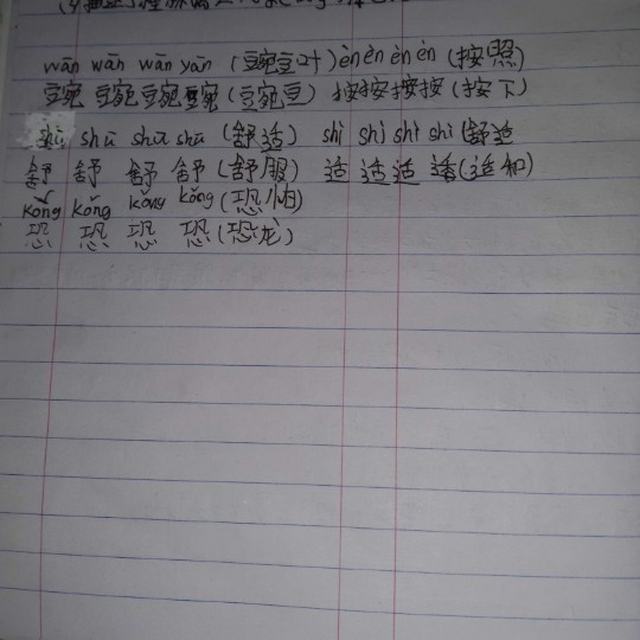 wān wān wān yān (豌豆叶) èn èn èn èn (按照)
豌 豌 豌 豌 (豌豆) 按按按按 (按下)
shū shū shū shū (舒适) shì shì shì shì (舒适
舒 舒 舒 舒 (舒服) 适 适 适 适 (适和)
kǒng kǒng kǒng kǒng (恐怕)
恐 恐 恐 恐 (恐龙)